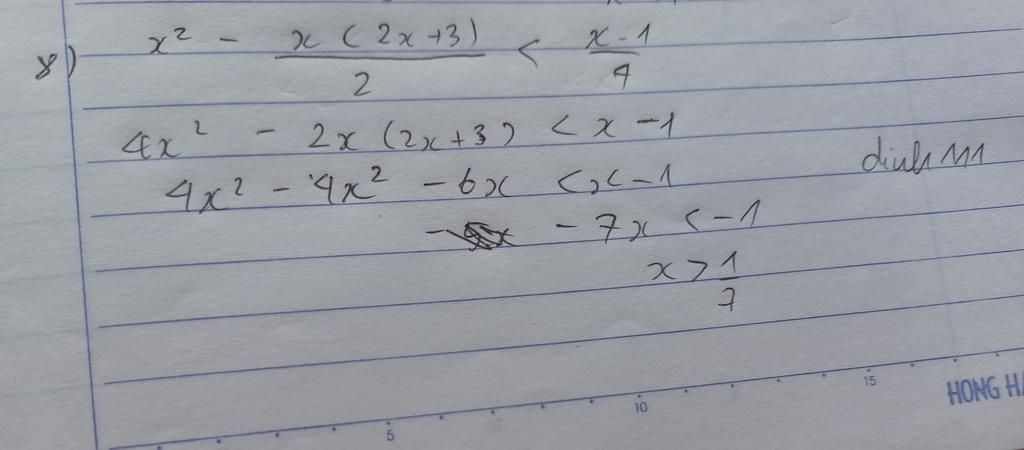 8) x² - x(2x+3)/2 < x-1/4
4x² - 2x(2x+3) < x-1
4x² - 4x² - 6x < x-1
- 7x < -1
x > 1/7
5 10 15
HONG HA